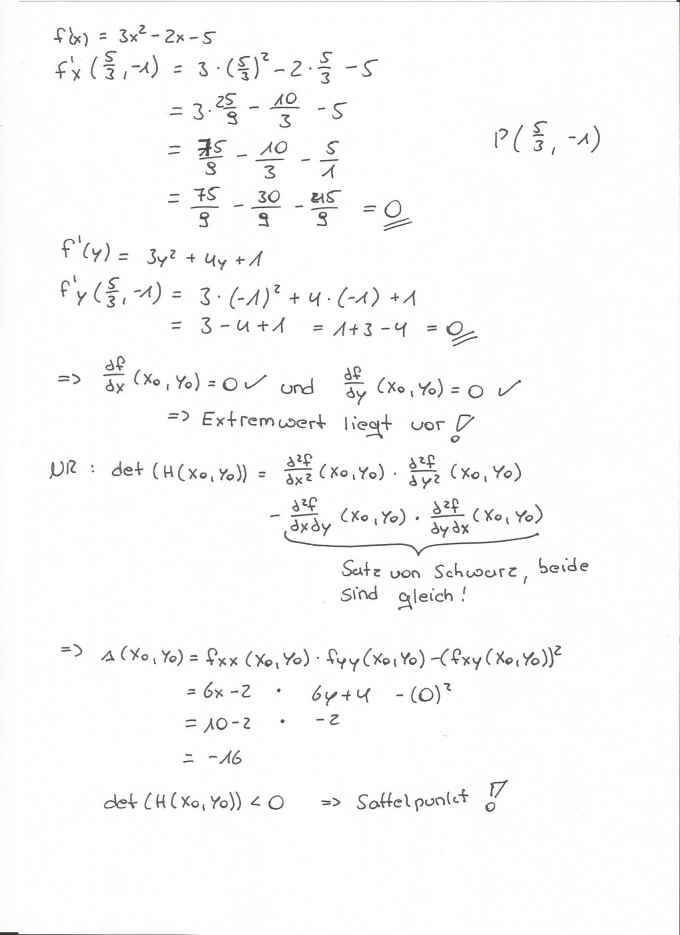 f'(x) = 3x² - 2x - 5
f'x (5/3, -1) = 3 · (5/3)² - 2 · 5/3 - 5
= 3 · 25/9 - 10/3 - 5
P(5/3, -1)
= 75/9 - 10/3 - 5/1
= 75/9 - 30/9 - 45/9 = 0
f'(y) = 3y² + 4y + 1
f'y (5/3, -1) = 3 · (-1)² + 4 · (-1) + 1
= 3 - 4 + 1 = 1 + 3 - 4 = 0
=> ∂f/∂x (x₀, y₀) = 0 ✓ und ∂f/∂y (x₀, y₀) = 0 ✓
=> Extremwert liegt vor!
NR : det (H(x₀, y₀)) = ∂²f/∂x² (x₀, y₀) · ∂²f/∂y² (x₀, y₀)
- ∂²f/∂x∂y (x₀, y₀) · ∂²f/∂y∂x (x₀, y₀)
Satz von Schwarz, beide
sind gleich!
=> Δ(x₀, y₀) = fxx (x₀, y₀) · fyy (x₀, y₀) - (fxy (x₀, y₀))²
= 6x - 2 · 6y + 4 - (0)²
= 10 - 2 · -2
= -16
det (H(x₀, y₀)) < 0 => Sattelpunkt!